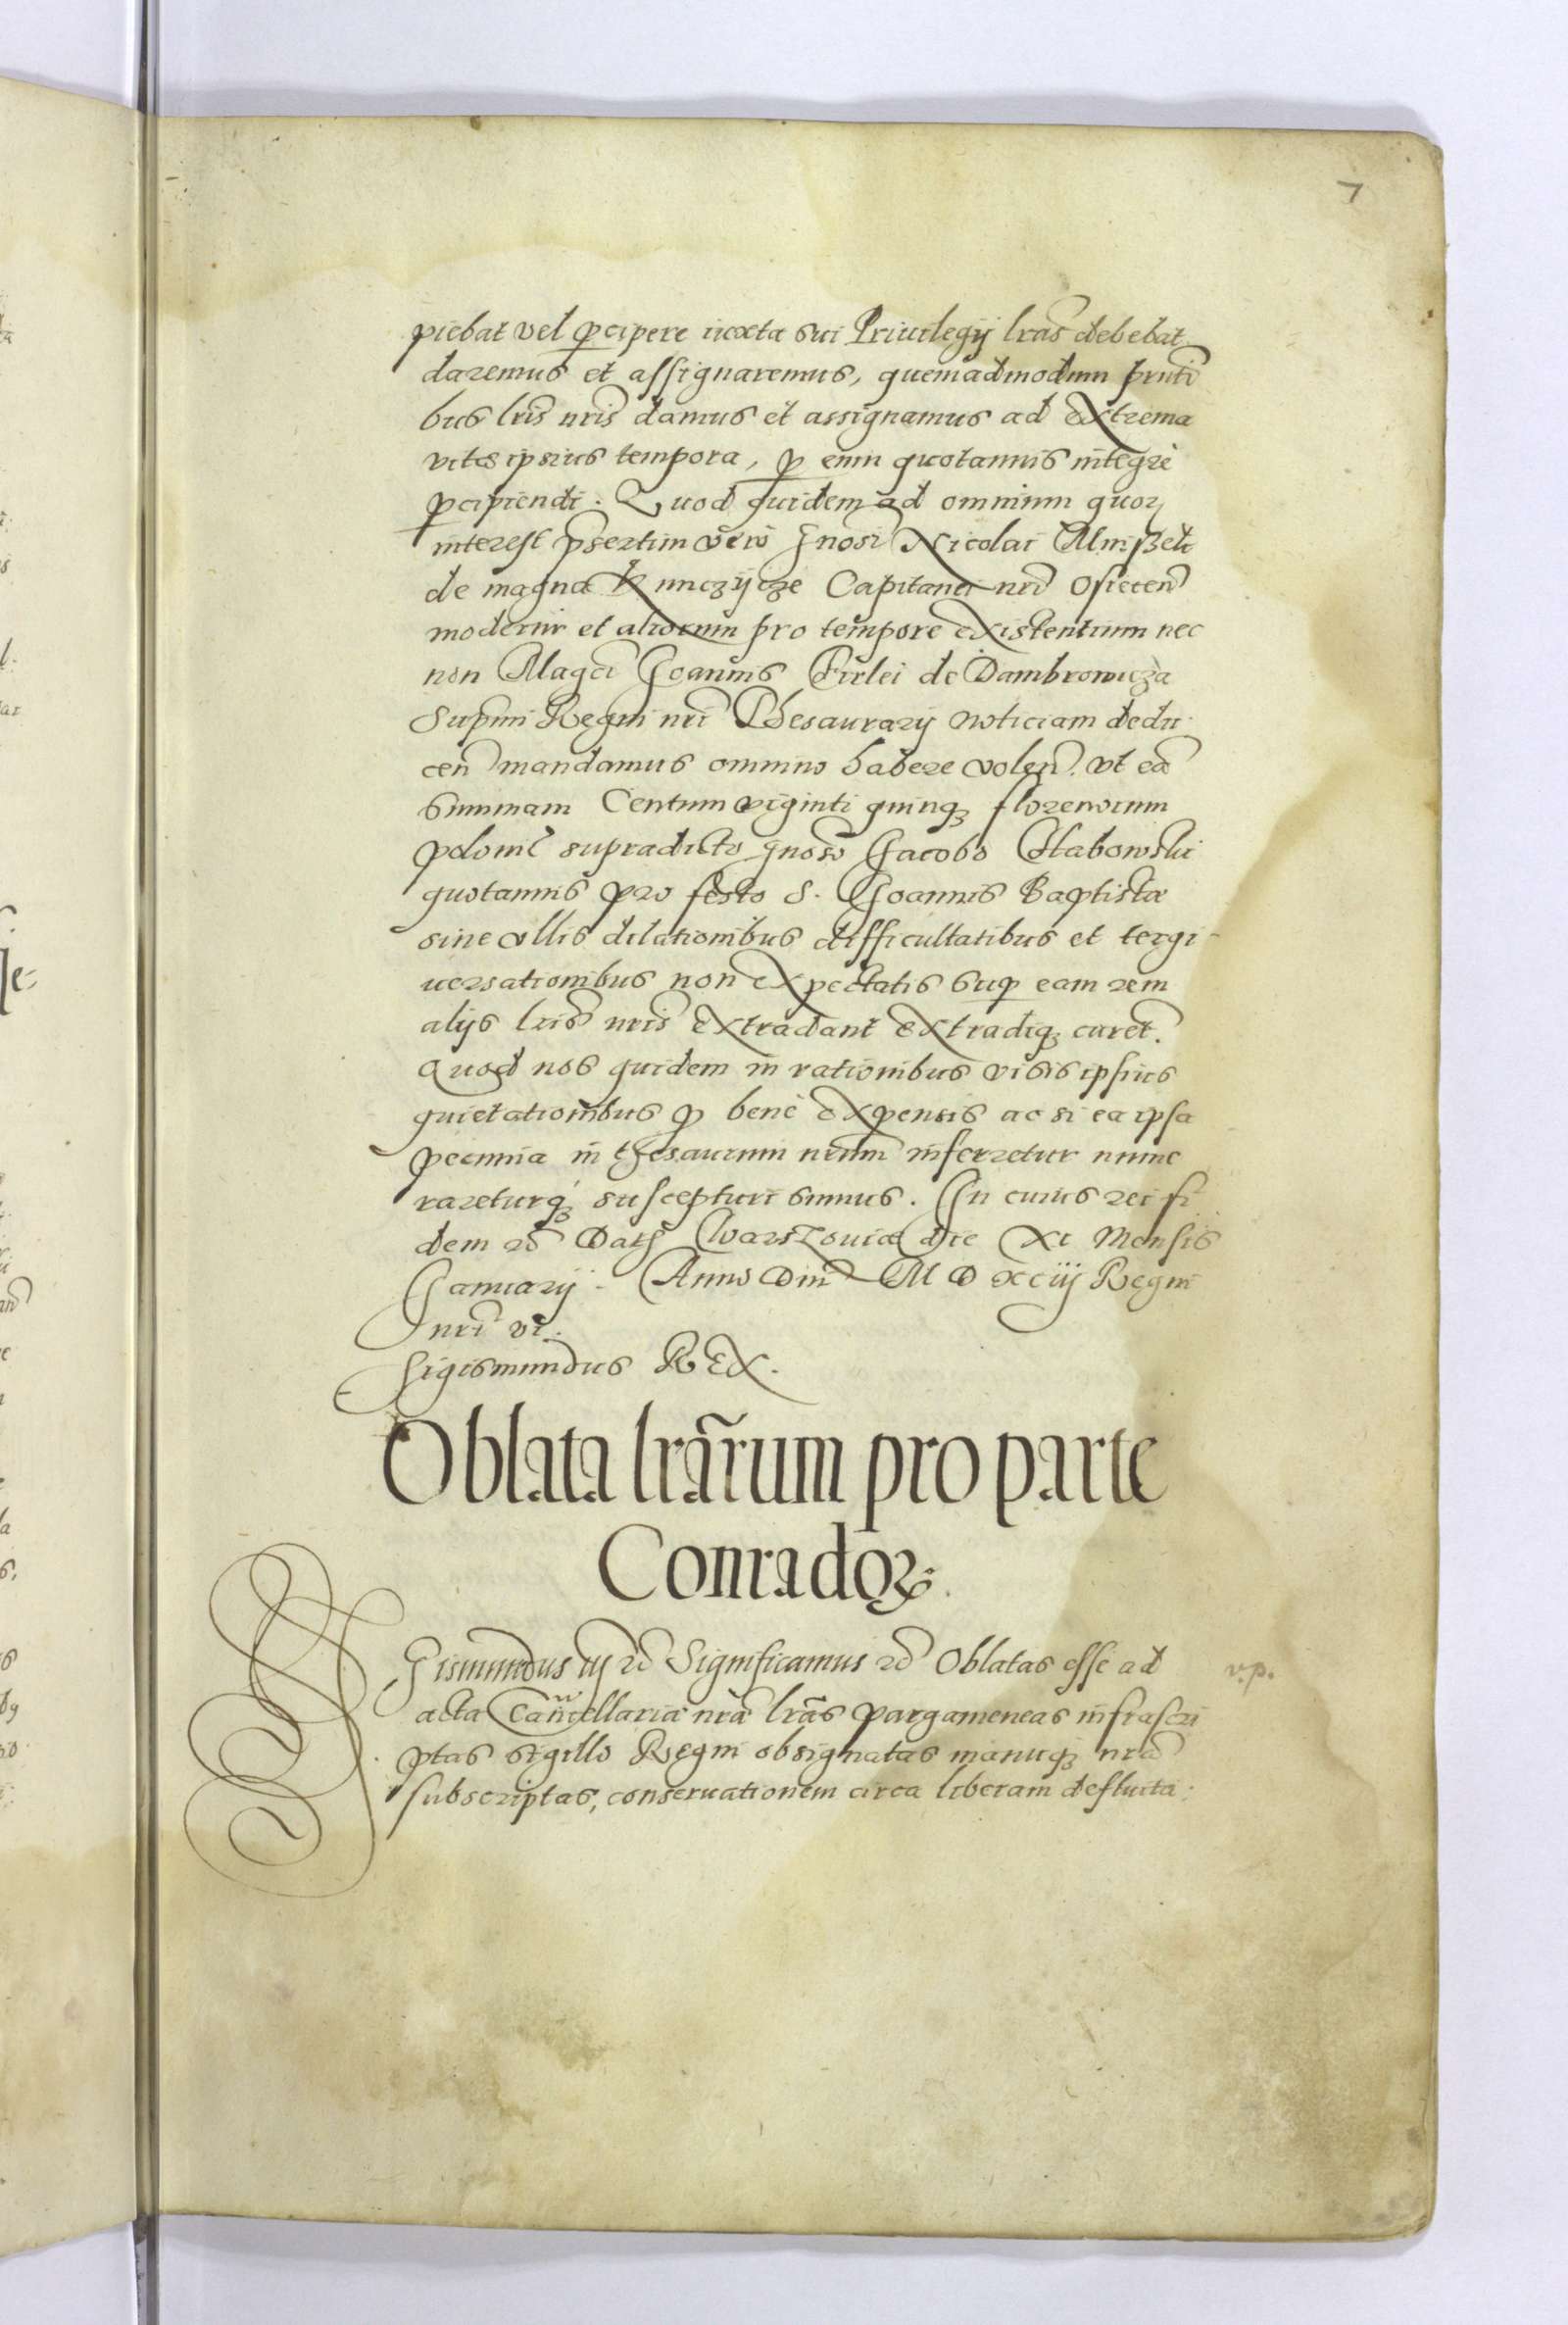 7
piebat vel ꝑcipere iuxta sui Priuilegÿ lras̃ debebat
daremus et assignaremus, quemadmodum prnti
bus lris̃ nris̃ damus et assignamus ad Extrema
vitæ ipsius tempora, ꝑ eum quotannis integrè
ꝑcipiendi. Quod quidem ad omnium quorꝫ
interest p̃sertim verò gnosi Nicolai
de magna Kunczÿcze Capitanei nrĩ Osiecen̄
moderni et aliorum pro tempore Existentium nec
non Magci Joannis Firlei de Dambrowicza
Sup̃mi Regni nrĩ Thesaurarÿ noticiam dedu
cen̄ mandamus omnino habere volen̄. vt eã
summam Centum viginti quinqꝫ florenorum
polonĩ supradicto gnoso Jacobo
quotannis pro festo S. Joannis Baptistæ
sine vllis dilationibus difficultatibus et tergi-
uersationibus non Expectatis suꝑ eam rem
alÿs lris̃ nris̃ Extradant Extradiqꝫ curet̃.
Quod nos quidem in rationibus visis ipsius
quietationibus ꝑ benè Expensis ac si ea ipsa
pecunia in thesaurum nrum̃ inferretur nume
rareturqꝫ suscepturi sumus. In cuius rei fi
dem rc̃ Datꝭ Warszouiæ die XI Mensis
Januarÿ. Anno Dni M D xciij Regni
nrĩ vi.
Sigismundus REX.
Oblata lrãrum pro parte
Conradoꝝ.
Sigismundus iij rc̃ Significamus rc̃ Oblatas esse ad
acta Cancellariæ nræ̃ lrãs pargameneas infrascri
ptas sigillo Regni obsignatas manuqꝫ nrã
subscriptas, conseruationem circa liberam defluita:
v.p.